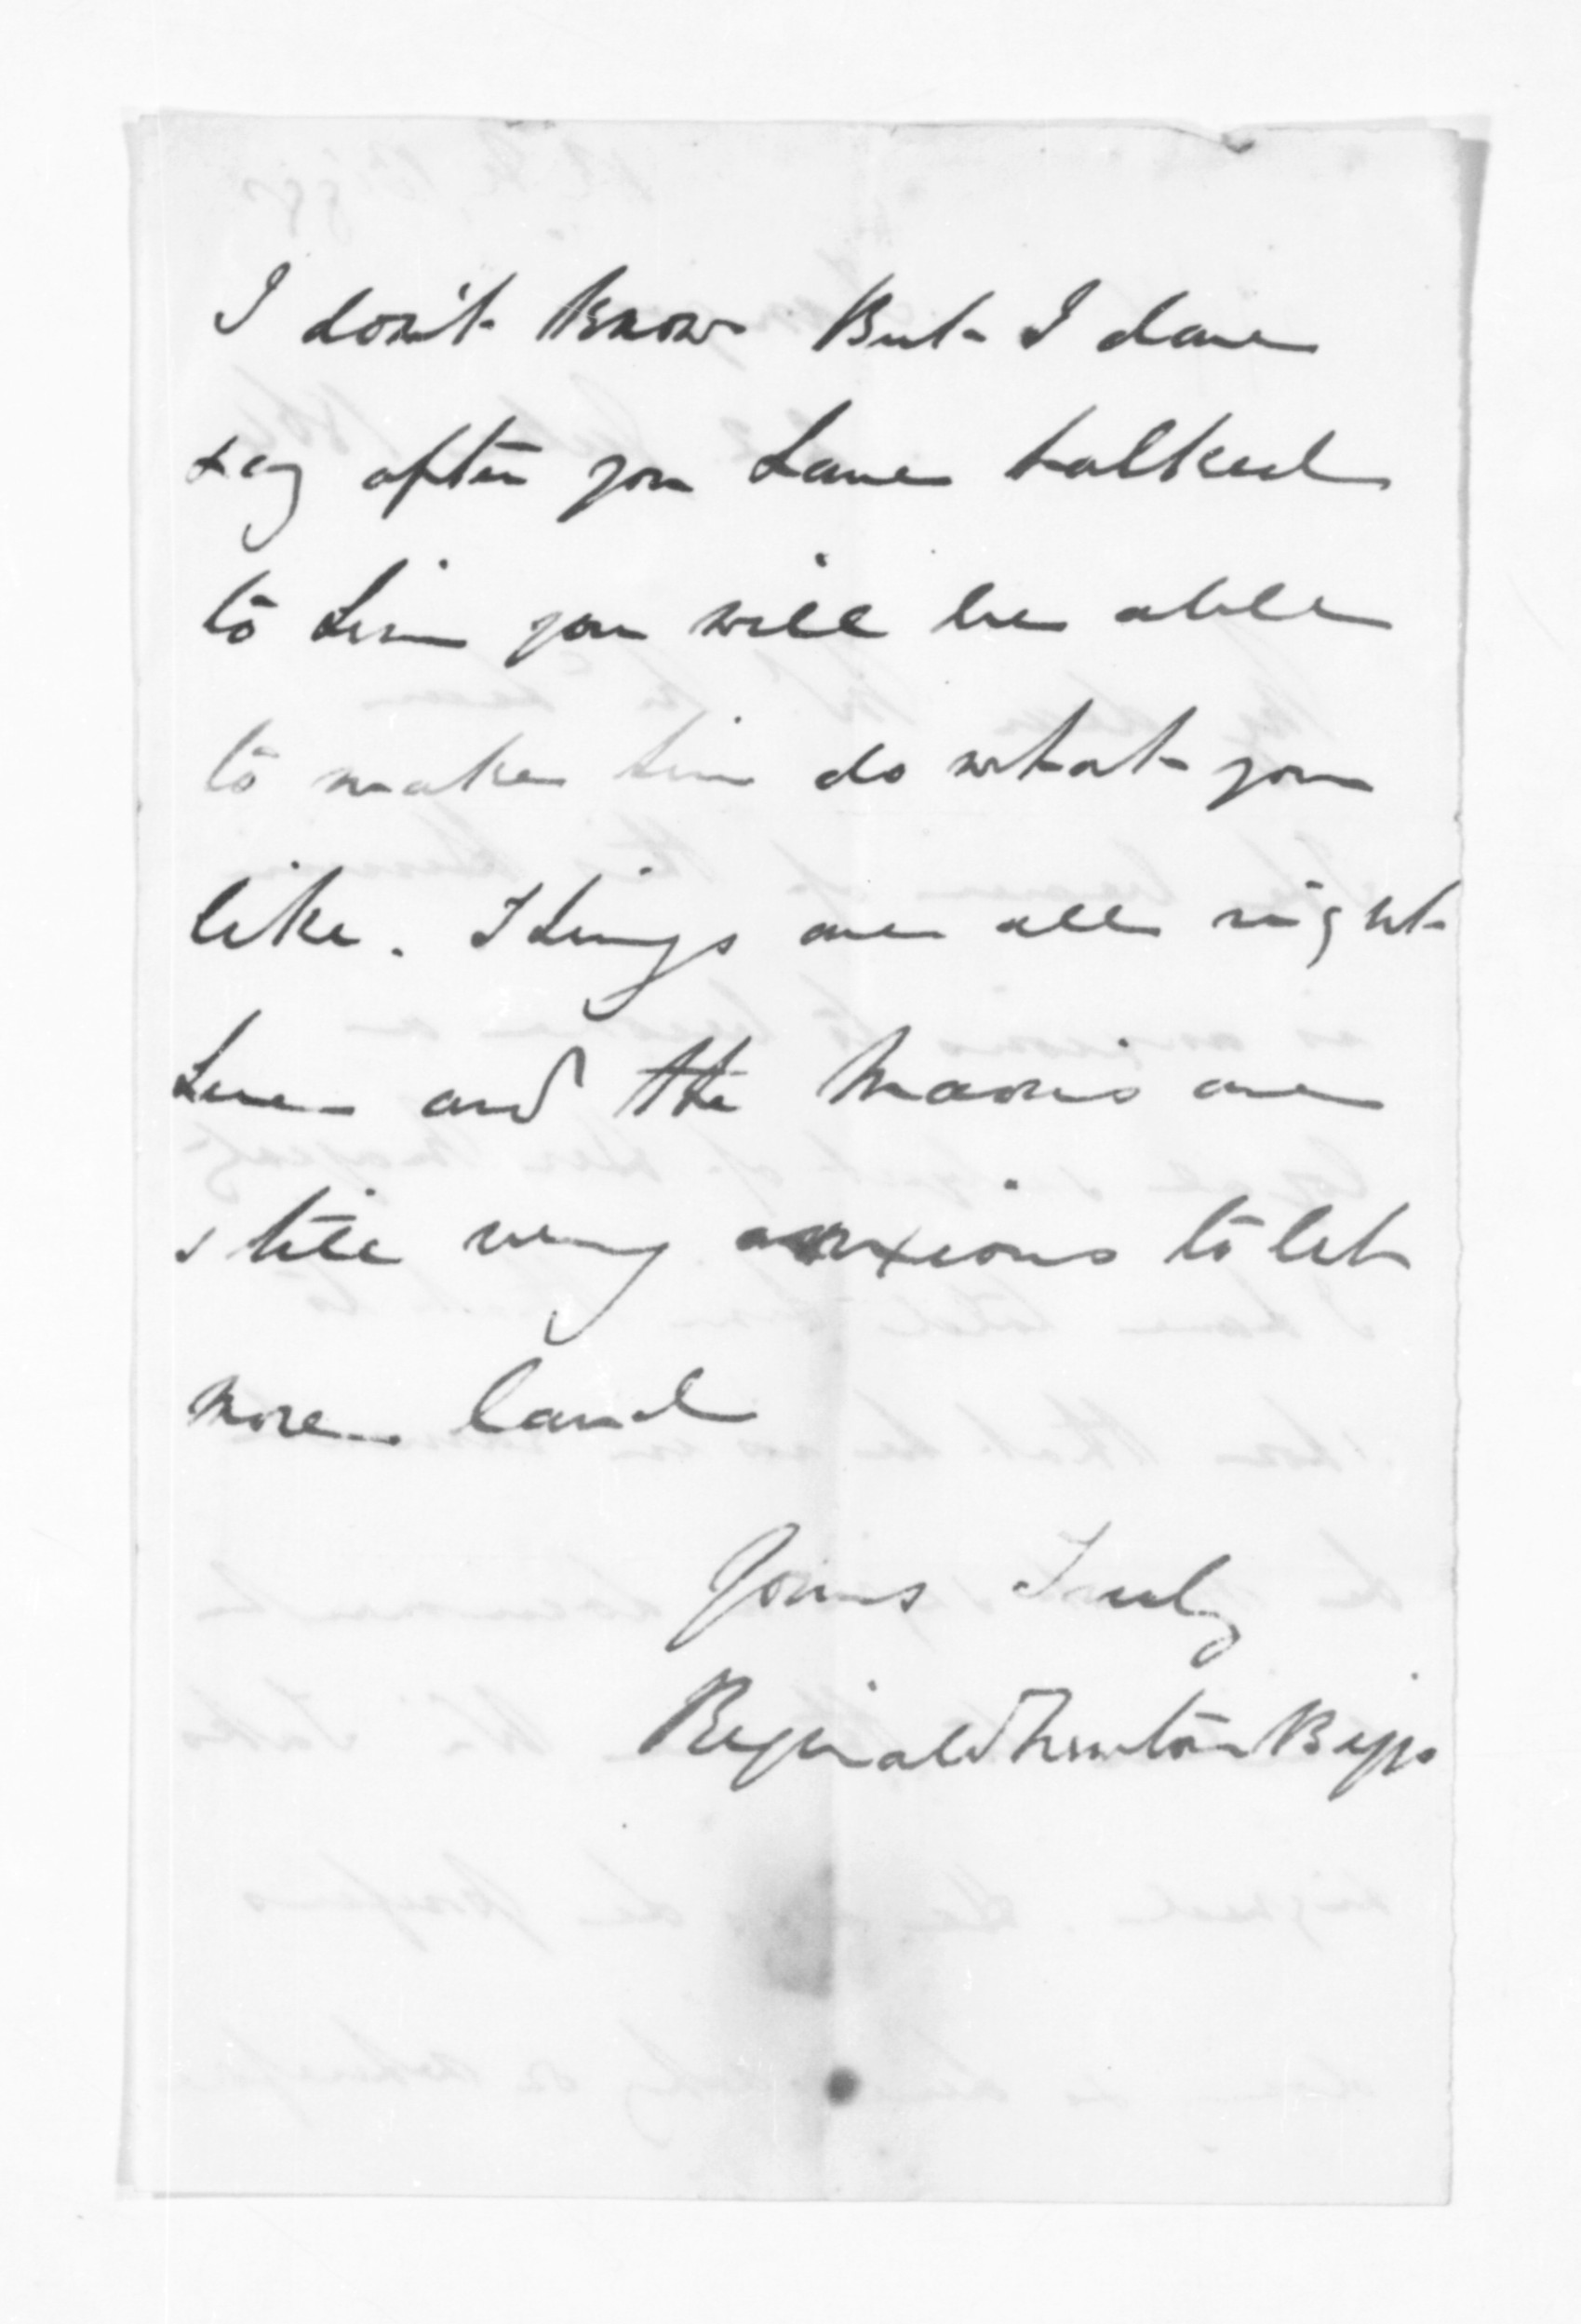 I don't know But I dare
say after you have talked
to him you will be able
to make him do what you
like. Things are all right
here and the Maoris are
still very anxious to let
more land
Yours Truly
Reginald Newton Biggs